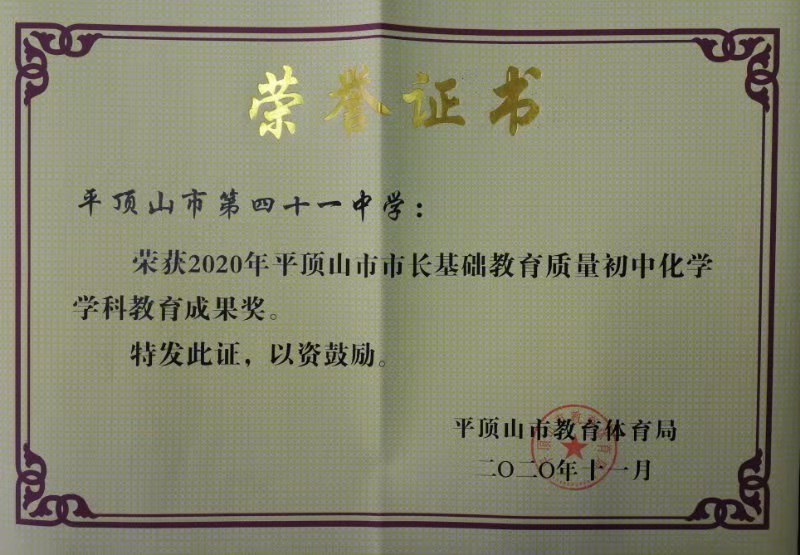 荣誉证书
平顶山市第四十一中学：
荣获2020年平顶山市市长基础教育质量初中化学
学科教育成果奖。
特发此证，以资鼓励。
平顶山市教育体育局
二〇二〇年十一月